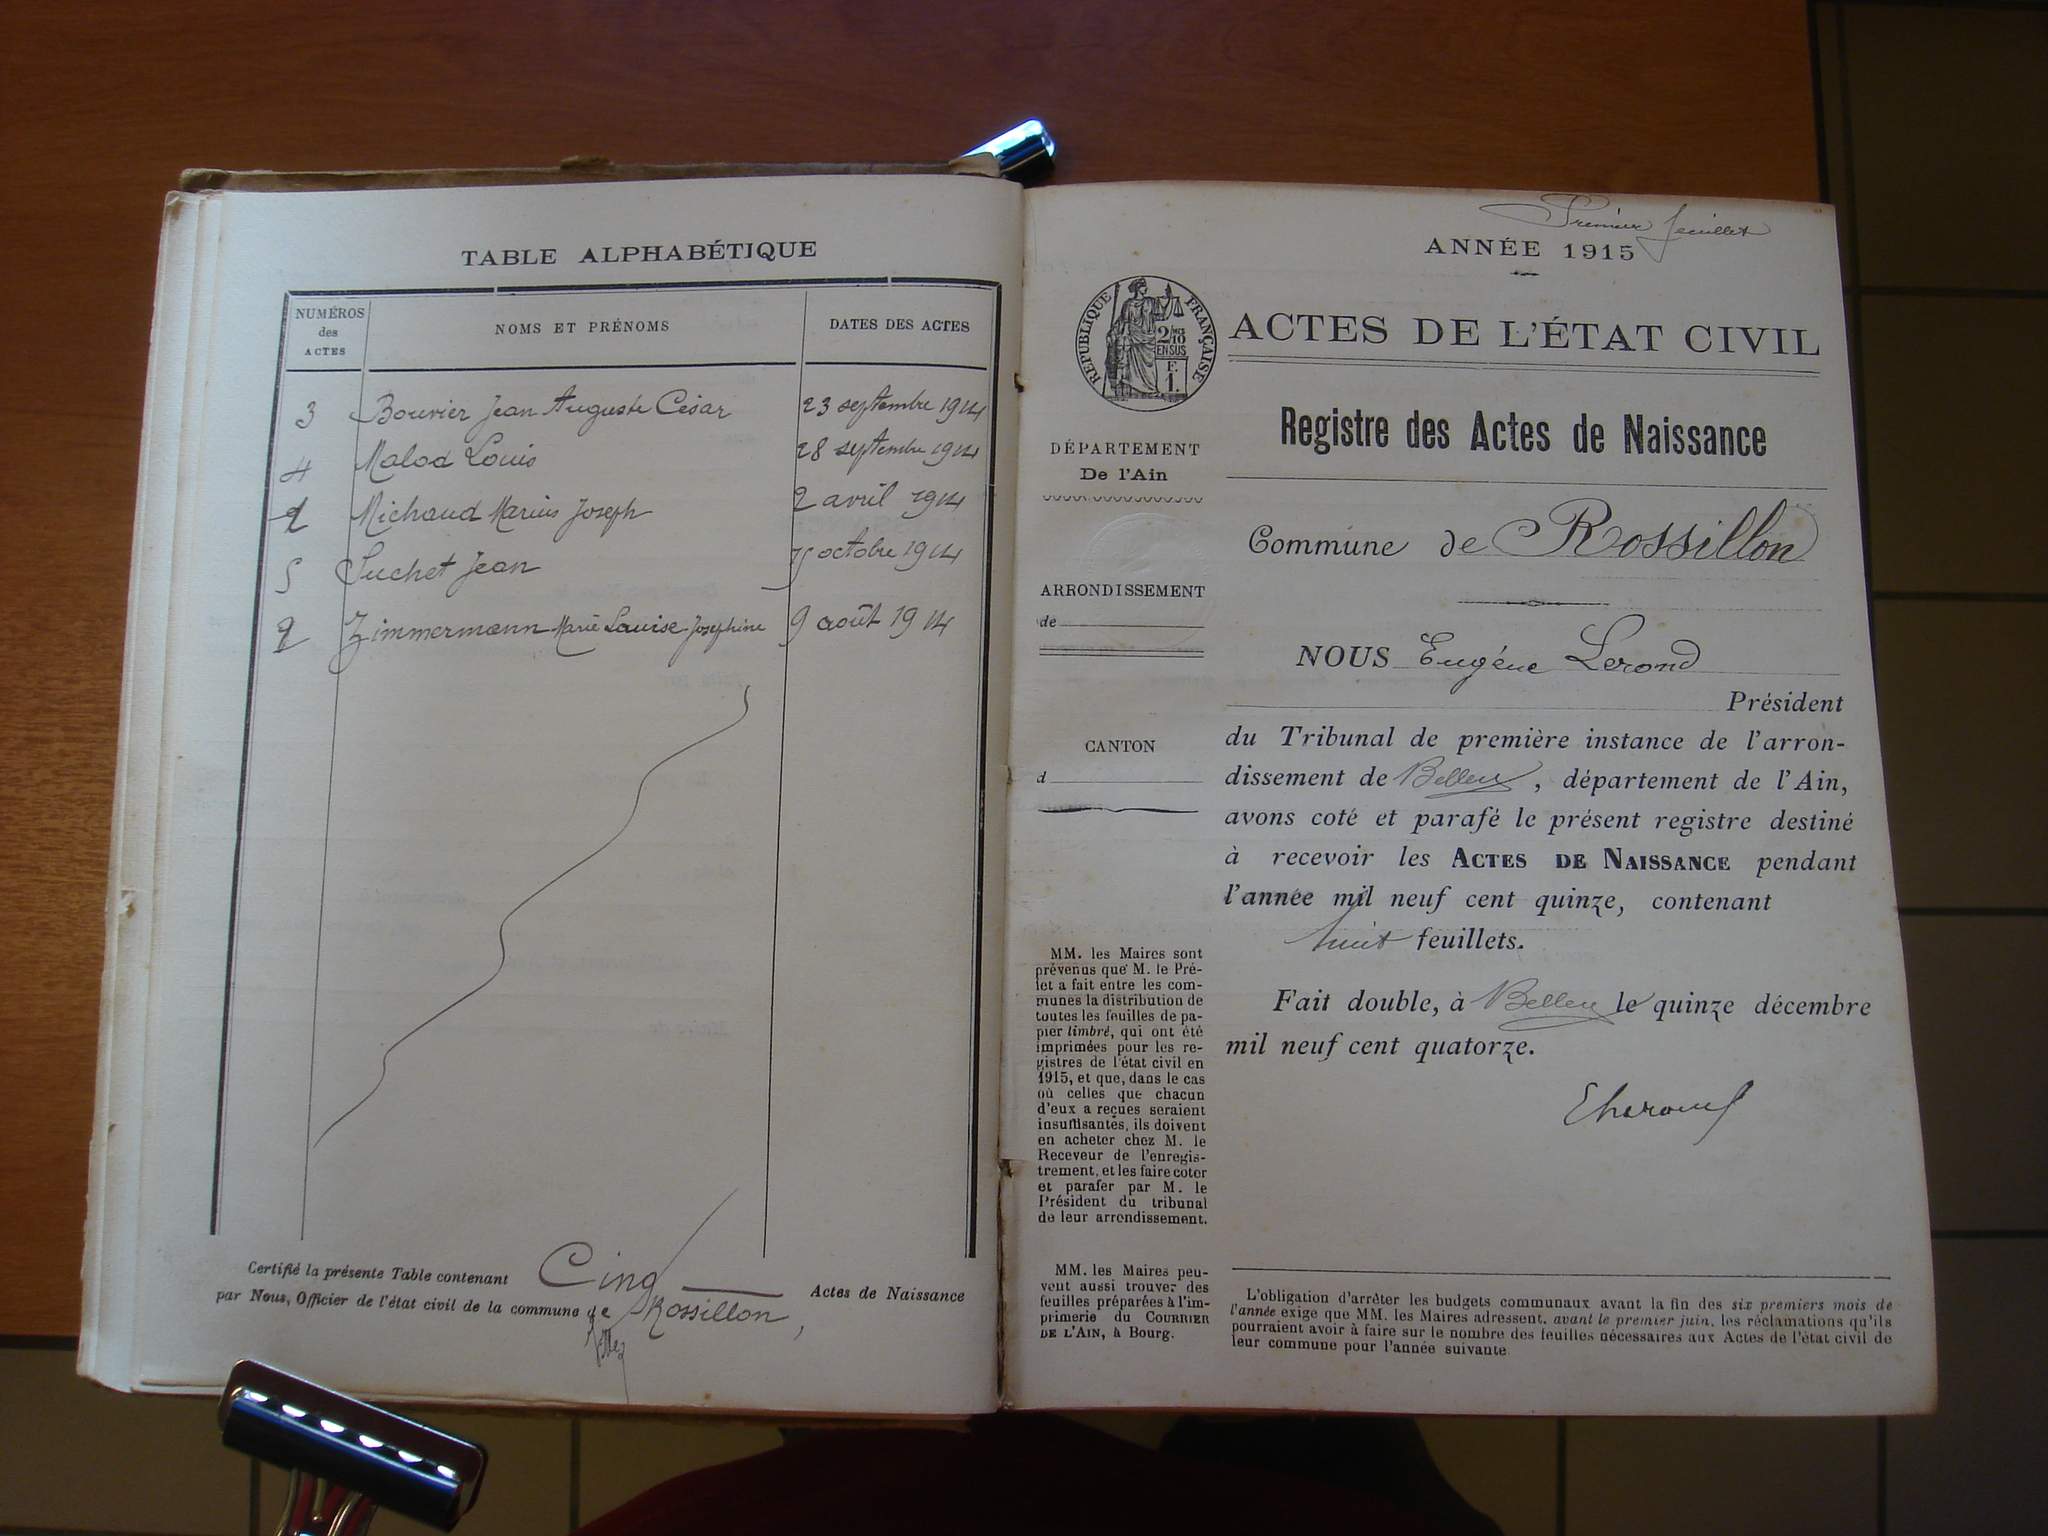 TABLE ALPHABÉTIQUE
NUMÉROS des ACTES
NOMS ET PRÉNOMS
DATES DES ACTES
3 Bouvier Jean Auguste César 23 septembre 1914
4 Malod Louis 28 septembre 1914
Michaud Marius Joseph 2 avril 1914
5 Suchet Jean octobre 1914
2 Zimmermann Marie Louise Joséphine 9 août 1914
Certifié la présente Table contenant Cinq Actes de Naissance
par Nous, Officier de l'état civil de la commune de Rossillon,
Premier feuillet
ANNÉE 1915
RÉPUBLIQUE FRANÇAISE
2/10
EN SUS
F.
1.
ACTES DE L'ÉTAT CIVIL
Registre des Actes de Naissance
DÉPARTEMENT
De l'Ain
Commune de Rossillon
ARRONDISSEMENT
de
NOUS Eugène Lerond
Président
du Tribunal de première instance de l'arron-
dissement de Belley, département de l'Ain,
avons coté et parafé le présent registre destiné
à recevoir les ACTES DE NAISSANCE pendant
l'année mil neuf cent quinze, contenant
huit feuillets.
Fait double, à Belley le quinze décembre
mil neuf cent quatorze.
CANTON
d
MM. les Maires sont
prévenus que M. le Pré-
fet a fait entre les com-
munes la distribution de
toutes les feuilles de pa-
pier timbré, qui ont été
imprimées pour les re-
gistres de l'état civil en
1915, et que, dans le cas
où celles que chacun
d'eux a reçues seraient
insuffisantes, ils doivent
en acheter chez M. le
Receveur de l'enregis-
trement, et les faire coter
et parafer par M. le
Président du tribunal
de leur arrondissement.
MM. les Maires peu-
vent aussi trouver des
feuilles préparées à l'im-
primerie du COURRIER
DE L'AIN, à Bourg.
L'obligation d'arrêter les budgets communaux avant la fin des six premiers mois de
l'année exige que MM. les Maires adressent, avant le premier juin, les réclamations qu'ils
pourraient avoir à faire sur le nombre des feuilles nécessaires aux Actes de l'état civil de
leur commune pour l'année suivante.